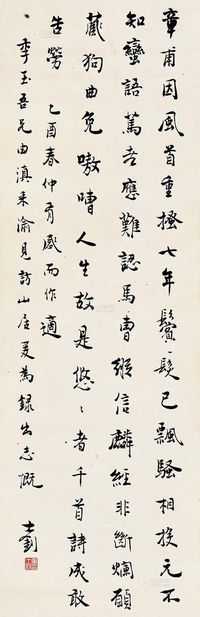 章甫因風首重搔七年鬢髮已飄騷相挨元不
知蠻語篤老應難認馬曹縱信麟經非斷爛願
藏狗曲免嗷嘈人生故是悠〻者千首詩成敢
告勞 乙酉春仲有感而作適
季玉吾兄由滇來渝見訪山居爰為錄出志慨
士釗